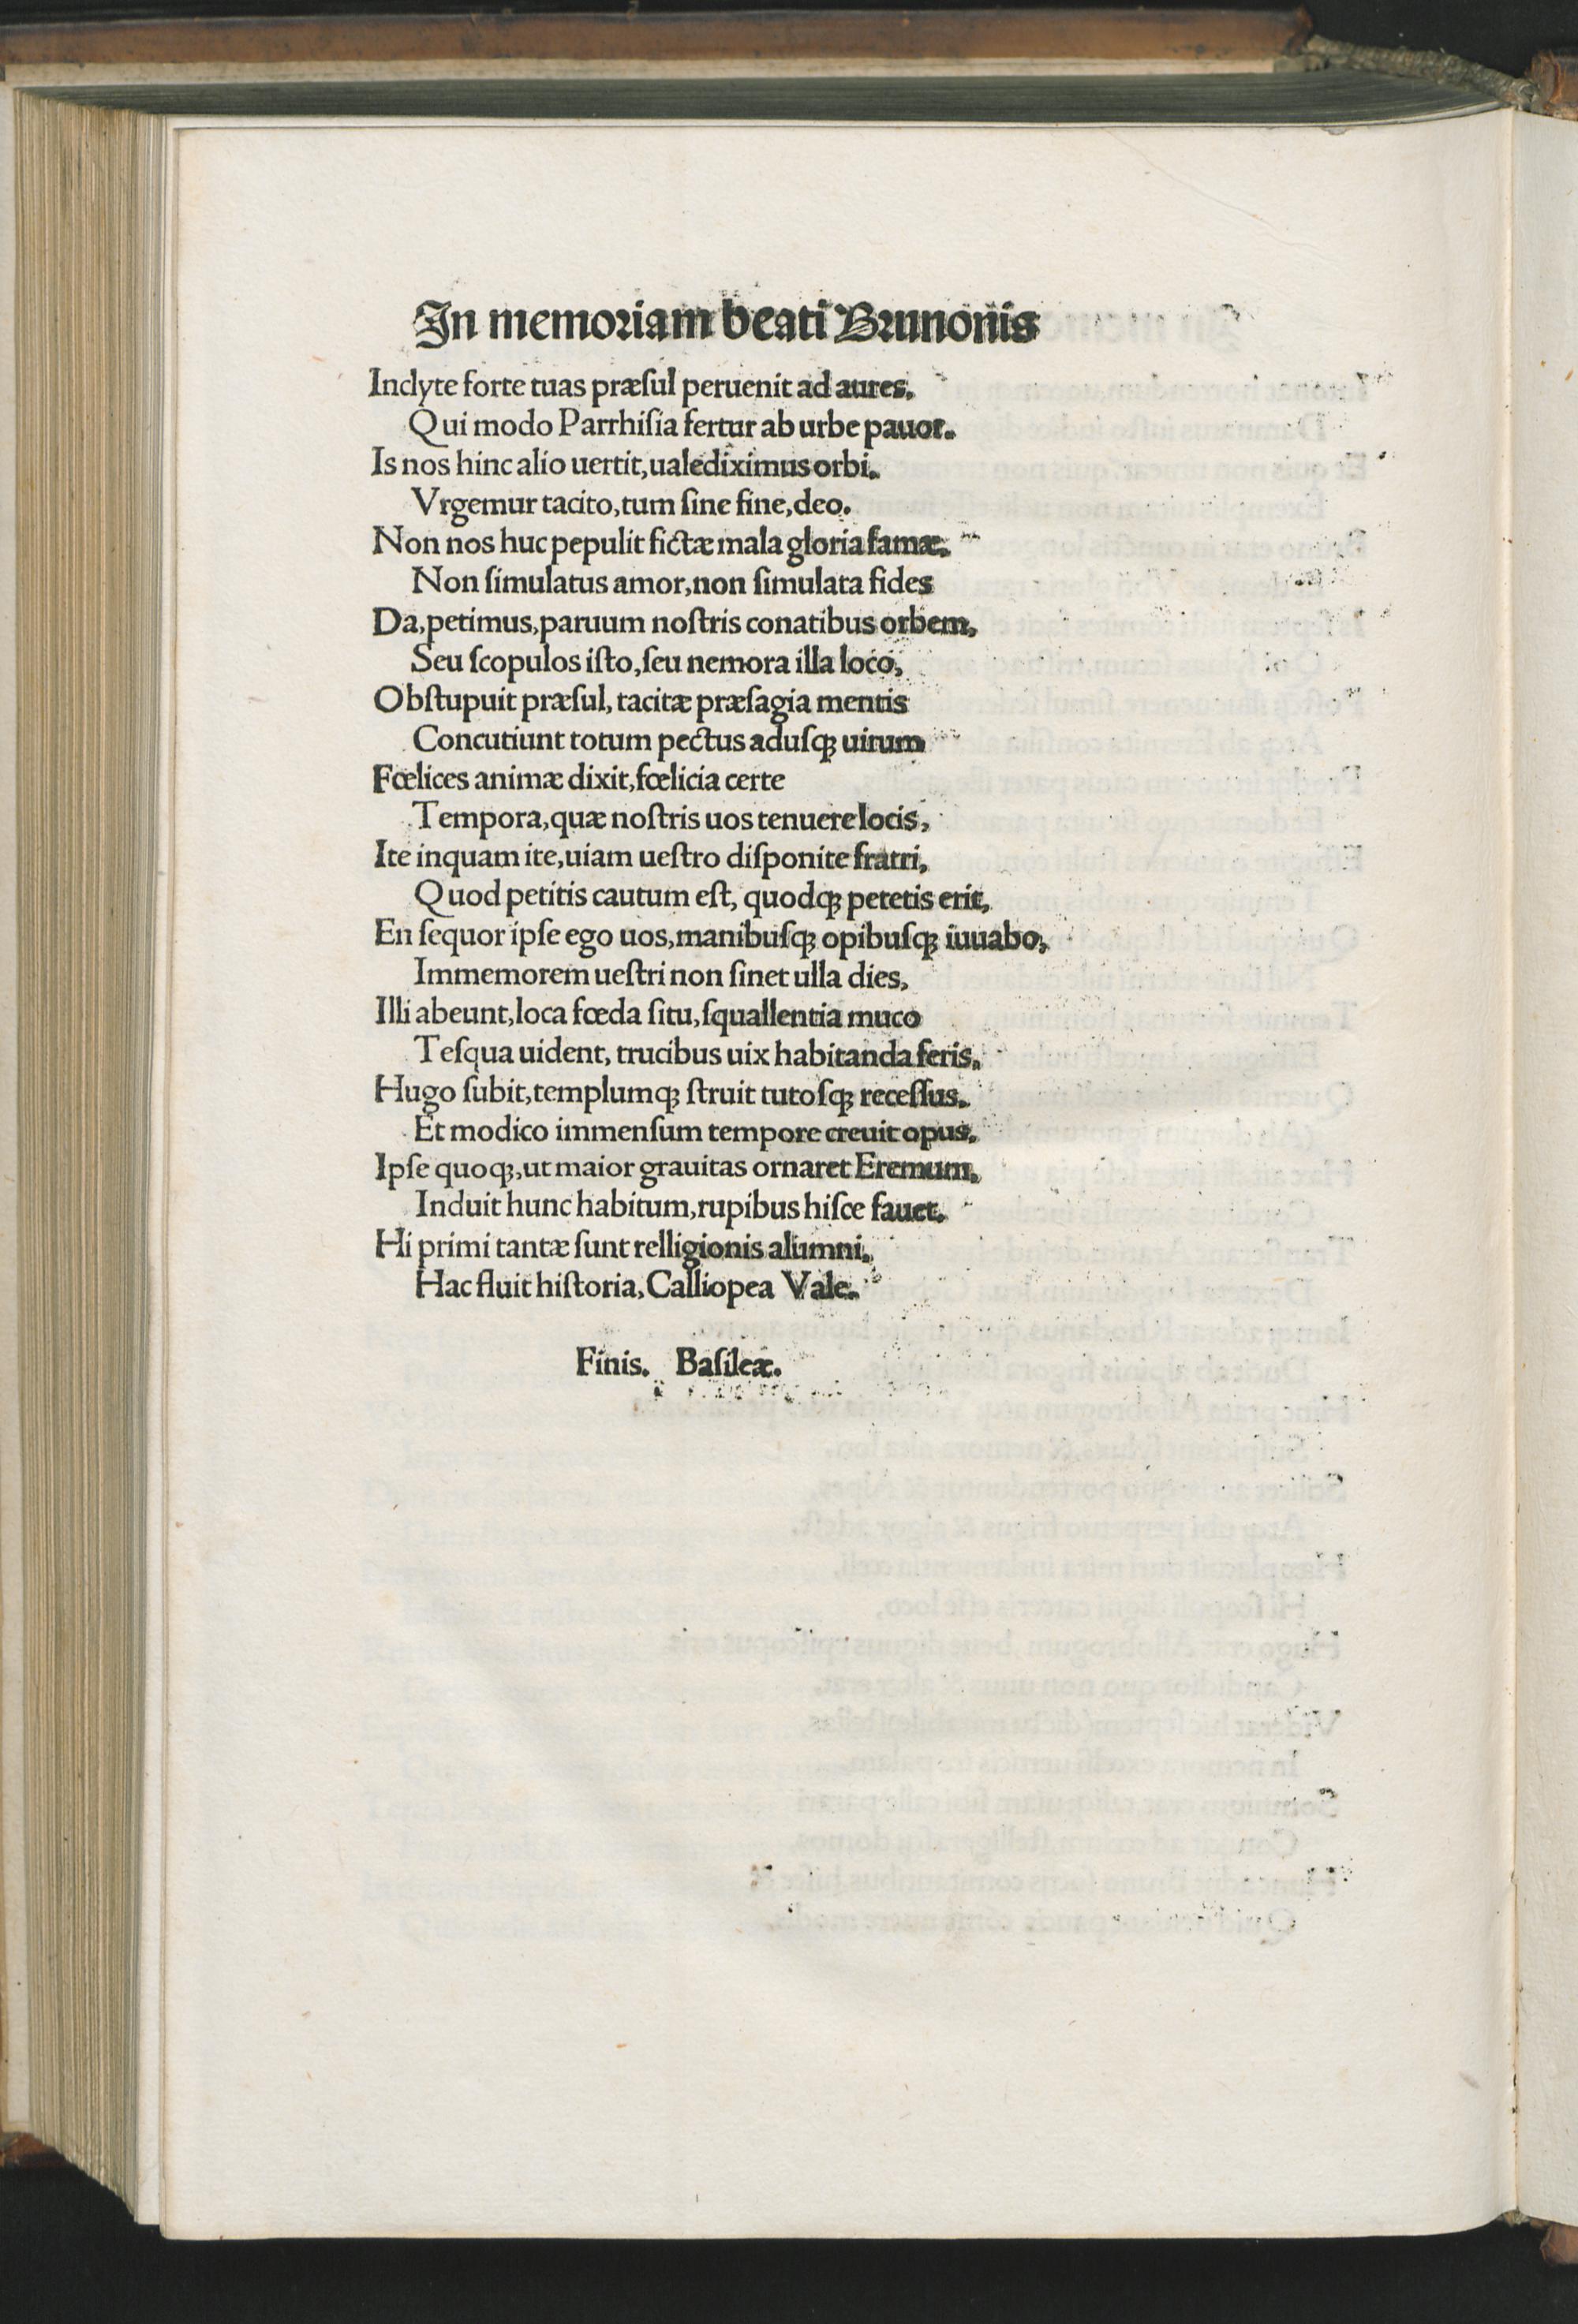 In memoriam beati Brunonis
Inclyte forte tuas præſul peruenit ad aures.
Qui modo Parrhiſia fertur ab urbe pauor.
Is nos hinc alio uertit,ualediximus orbi.
Vrgemur tacito,tum ſine fine,deo.
Non nos huc pepulit fictæ mala gloria famæ.
Non ſimulatus amor,non ſimulata fides
Da,petimus,paruum noſtris conatibus orbem,
Seu ſcopulos iſto,ſeu nemora illa loco,
Obſtupuit præſul, tacitæ præſagia mentis
Concutiunt totum pectus aduſqꝫ uirum
Fœlices animæ dixit,fœlicia certe
Tempora,quæ noſtris uos tenuere locis,
Ite inquam ite,uiam ueſtro diſponite fratri,
Quod petitis cautum eſt, quodqꝫ petetis erit,
En ſequor ipſe ego uos,manibuſqꝫ opibuſqꝫ iuuabo,
Immemorem ueſtri non ſinet ulla dies,
Illi abeunt,loca fœda ſitu,ſquallentia muco
Teſqua uident, trucibus uix habitanda feris.
Hugo ſubit,templumqꝫ ſtruit tutoſqꝫ receſſus.
Et modico immenſum tempore creuit opus.
Ipſe quoqꝫ,ut maior grauitas ornaret Eremum.
Induit hunc habitum,rupibus hiſce fauet.
Hi primi tantæ ſunt relligionis alumni.
Hac fluit hiſtoria,Calliopea Vale.
Finis. Baſileæ.